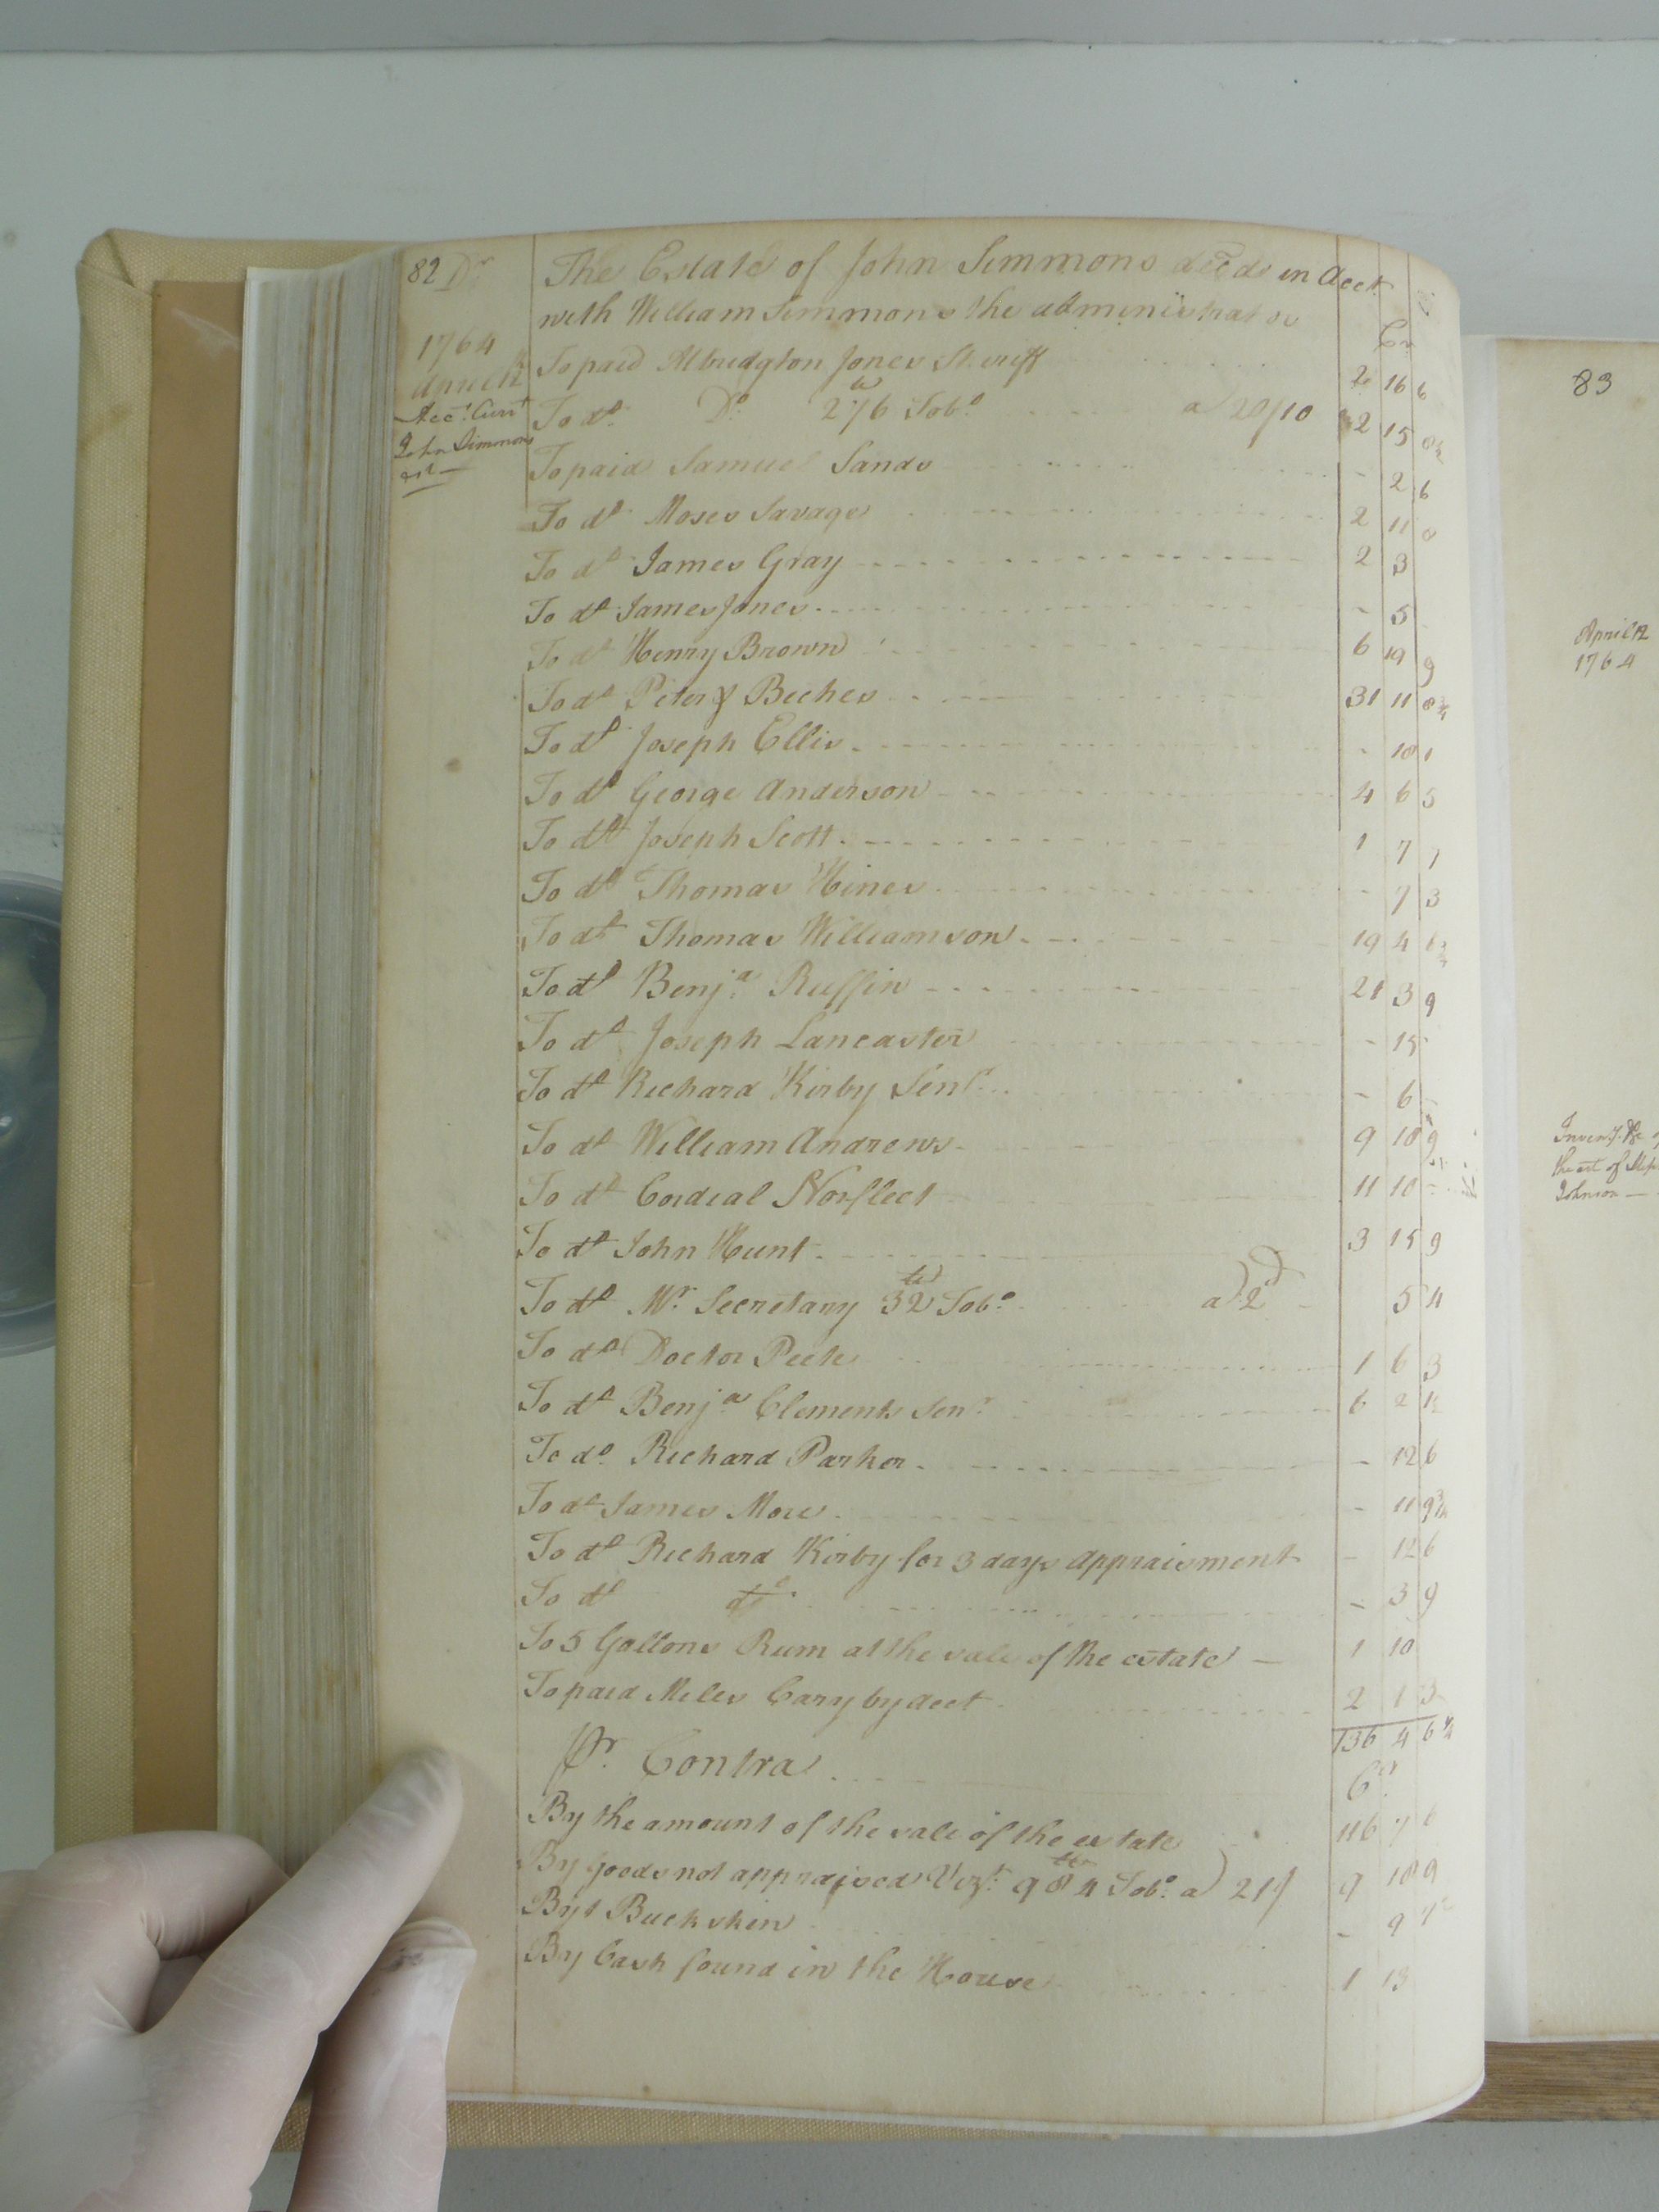 82 Dr The Estate of John Simmons decd in Acct
with William Simmons the administrator
Cr
1764
April 12
Acct Currt
John Simmons
est
To paid Albridgton Jones Sheriff 2 16 6
To do Do 276 w Tobo a 20/10 2 15
To paid Samuel Sands - 2 6
To do Moses Savage 2 11 8
To do James Gray 2 3
To do James Jones - 5
To do Henry Brown 6 19 9
To do Peter & Beches 31 11 8 3/4
To do Joseph Ellis - 18 1
To do George Anderson 4 6 5
To do Joseph Scott 1 7 7
To do Thomas Hines - 7 3
To do Thomas Williamson 19 4 6
To do Benja Ruffin 21 3 9
To do Joseph Lancaster - 15
To do Richard Kirby Senr - 6 -
To do William Andrews 9 18 9
To do Cordial Norfleet 11 10 -
To do John Hunt 3 15 9
To do Mr Secretary 32 w Tobo a 2d 5 4
To do Doctor Peete 1 6 3
To do Benja Clements Senr 6 2
To do Richard Parker - 12 6
To do James More - 11 9 3/4
To do Richard Kirby for 3 days appraisment - 12 6
To do do - 3 9
To 5 Gallons Rum at the sale of the estate 1 10
To paid Miles Cary by acct 2 1 3
136 4 6 1/4
Pr Contra Cr
By the amount of the sale of the estate 116 7 6
By goods not appraised Vizt 984 w Tobo a 21/ 9 18 9
By 1 Buckskin - 9
By Cash found in the House 1 13
83
April 12
1764
Inveny &c
the est of
Johnson